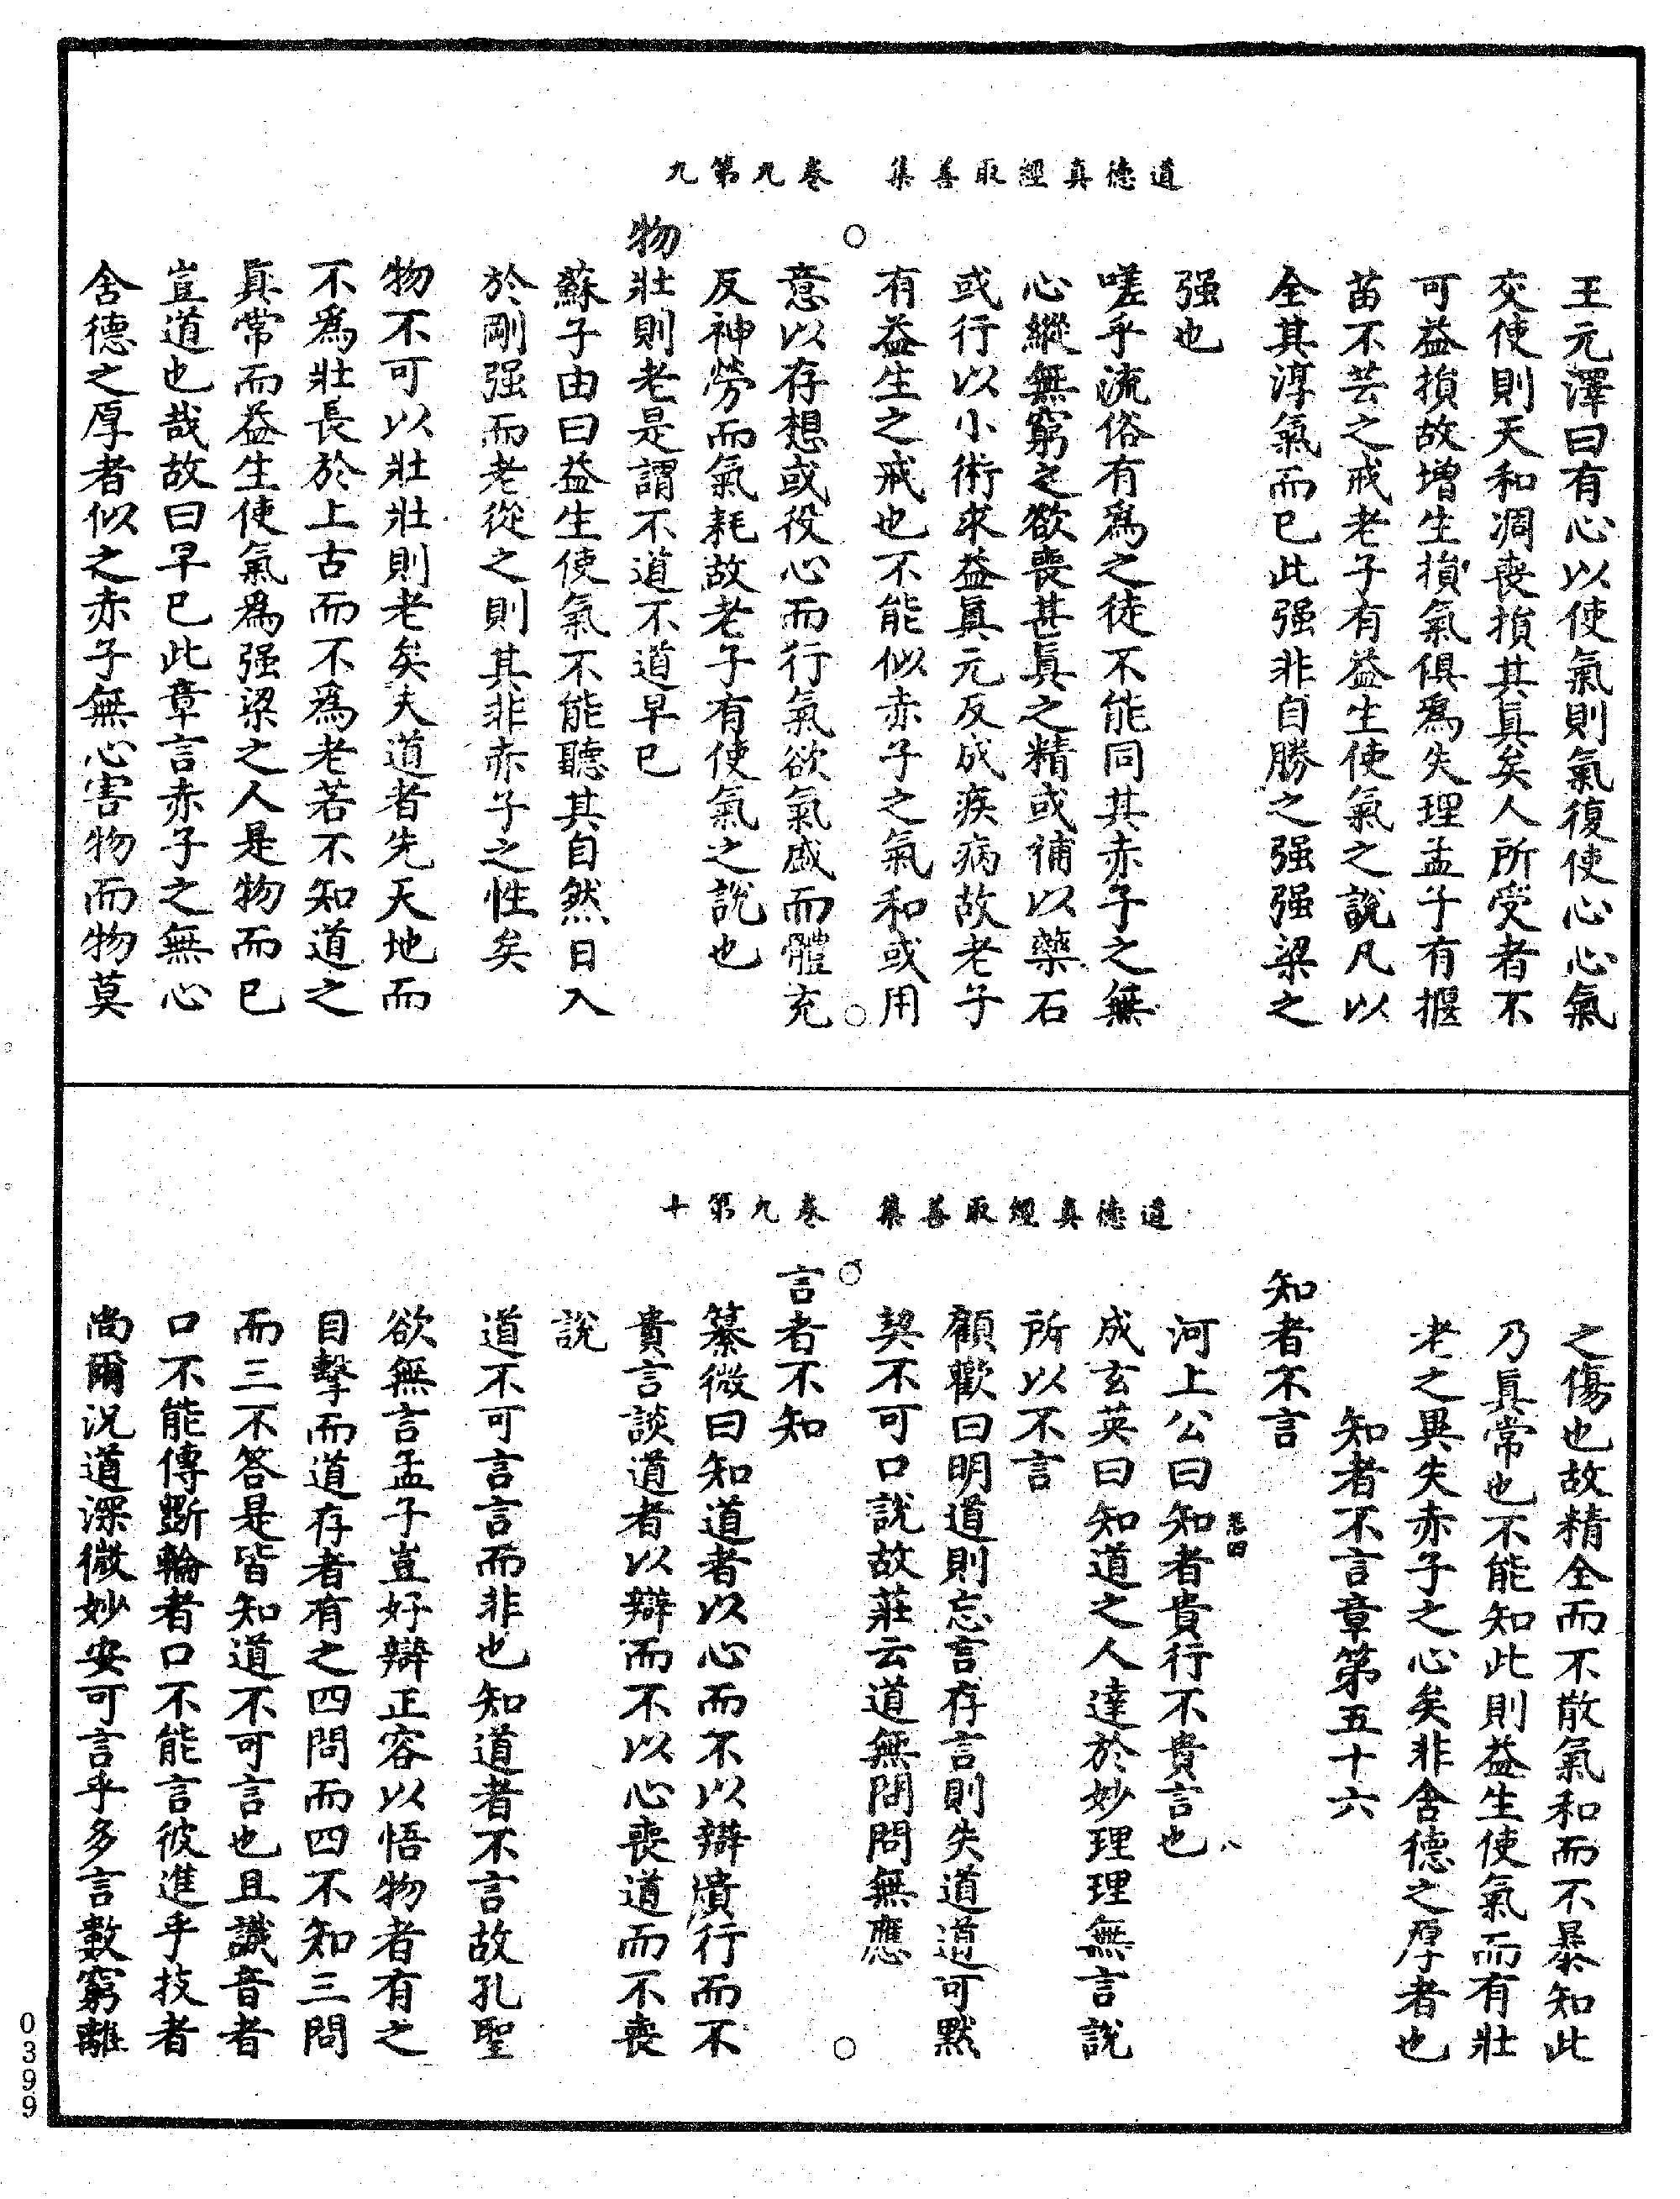 道德真經取善集　卷九第九
王元澤曰有心以使氣則氣復使心心氣
交使則天和凋喪損其真矣人所受者不
可益損故增生損氣俱爲失理孟子有揠
苗不芸之戒老子有益生使氣之說凡以
全其淳氣而已此强非自勝之强强梁之
强也
嗟乎流俗有爲之徒不能同其赤子之無
心縱無窮之欲喪甚真之精或補以藥石
或行以小術求益真元反成疾病故老子
有益生之戒也不能似赤子之氣和或用
意以存想或役心而行氣欲氣盛而體充
反神勞而氣耗故老子有使氣之說也
物壯則老是謂不道不道早已
蘇子由曰益生使氣不能聽其自然日入
於剛强而老從之則其非赤子之性矣
物不可以壯壯則老矣夫道者先天地而
不爲壯長於上古而不爲老若不知道之
真常而益生使氣爲强梁之人是物而已
豈道也哉故曰早已此章言赤子之無心
含德之厚者似之赤子無心害物而物莫
道德真經取善集　卷九第十
之傷也故精全而不散氣和而不暴知此
乃真常也不能知此則益生使氣而有壯
老之異失赤子之心矣非含德之厚者也
知者不言章第五十六
知者不言
悲四　八
河上公曰知者貴行不貴言也
成玄英曰知道之人達於妙理理無言說
所以不言
顧歡曰明道則忘言存言則失道道可默
契不可口說故莊云道無問問無應
言者不知
纂微曰知道者以心而不以辯憤行而不
貴言談道者以辯而不以心喪道而不喪
說
道不可言言而非也知道者不言故孔聖
欲無言孟子豈好辯正容以悟物者有之
目擊而道存者有之四問而四不知三問
而三不答是皆知道不可言也且識音者
口不能傳斲輪者口不能言彼進乎技者
尚爾況道深微妙安可言乎多言數窮離
0399